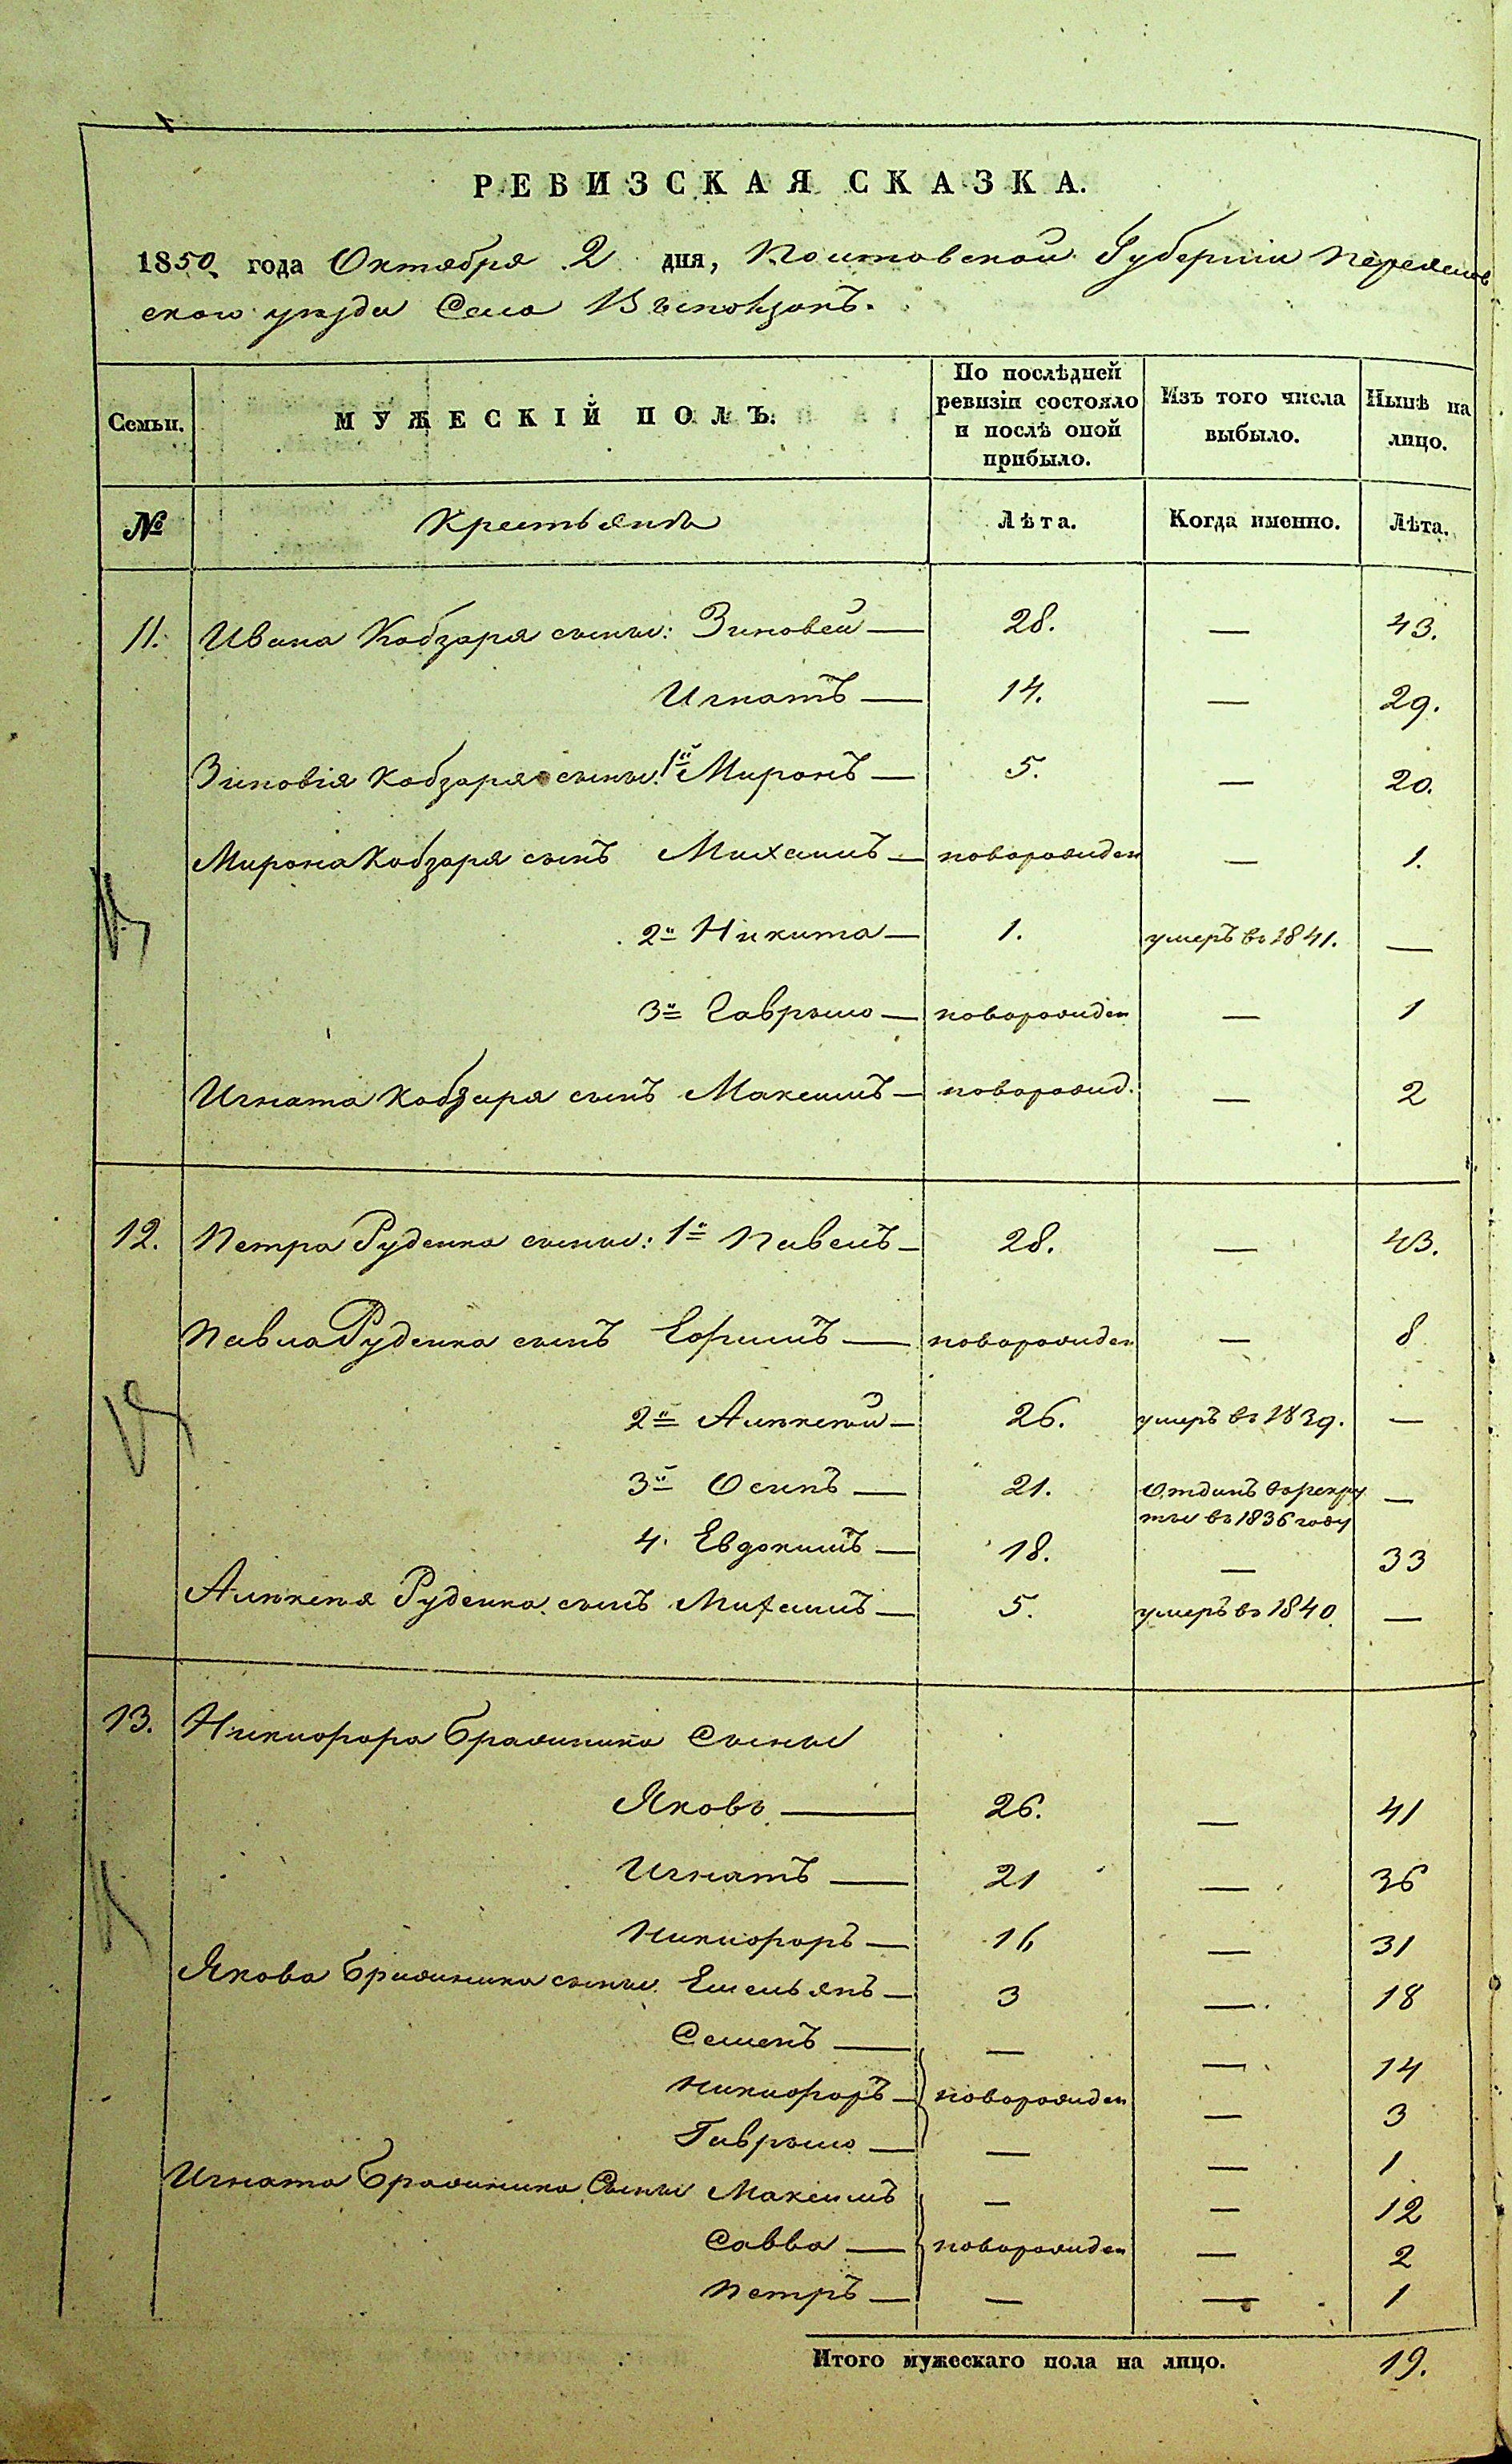 РЕВИЗСКАЯ СКАЗКА.
1850 года Октября 2 дня, Полтавской Губерніи Переяслов
скаго уѣзда Села
Семьи. МУЖЕСКІЙ ПОЛЪ. По послѣдней ревизіи состояло и послѣ оной прибыло. Изъ того числа выбыло. Нынѣ на лицо.
№ Крестьянъ Лѣта. Когда именно. Лѣта.
11. Ивана Кобзаря сыны: Зиновей — 28. — 43.
Игнатъ — 14. — 29.
Зиновія Кобзаря сыны: 1й Миронъ — 5. — 20.
Мирона Кобзаря сынъ Михаилъ — новорожден — 1.
2й Никита — 1. умеръ въ 1841. —
3й Гаврыло — новорожден — 1
Игната Кобзаря сынъ Максимъ — новорожд. — 2
12. Петра Руденка сыны: 1й Павелъ — 28. — 43.
Павла Руденка сынъ Ефимъ — новорожден — 8
2й Алексѣй — 26. умеръ въ 1839. —
3й Осипъ — 21. Отданъ въ рекру
ты въ 1836 году —
4. Евдокимъ — 18. — 33
Алексѣя Руденка сынъ Михаилъ — 5. умеръ въ 1840. —
13. Никифора Бражника Сыны
Яковъ — 26. — 41
Игнатъ — 21 — 36
Никифоръ — 16 — 31
Якова Бражника сыны Емельянъ — 3 — 18
Семенъ — — — 14
Никифоръ — новорожден — 3
Гаврыло — — — 1
Игната Бражника Сыны Максимъ — — 12
Савва — новорожден — 2
Петръ — — — 1
Итого мужескаго пола на лицо. 19.